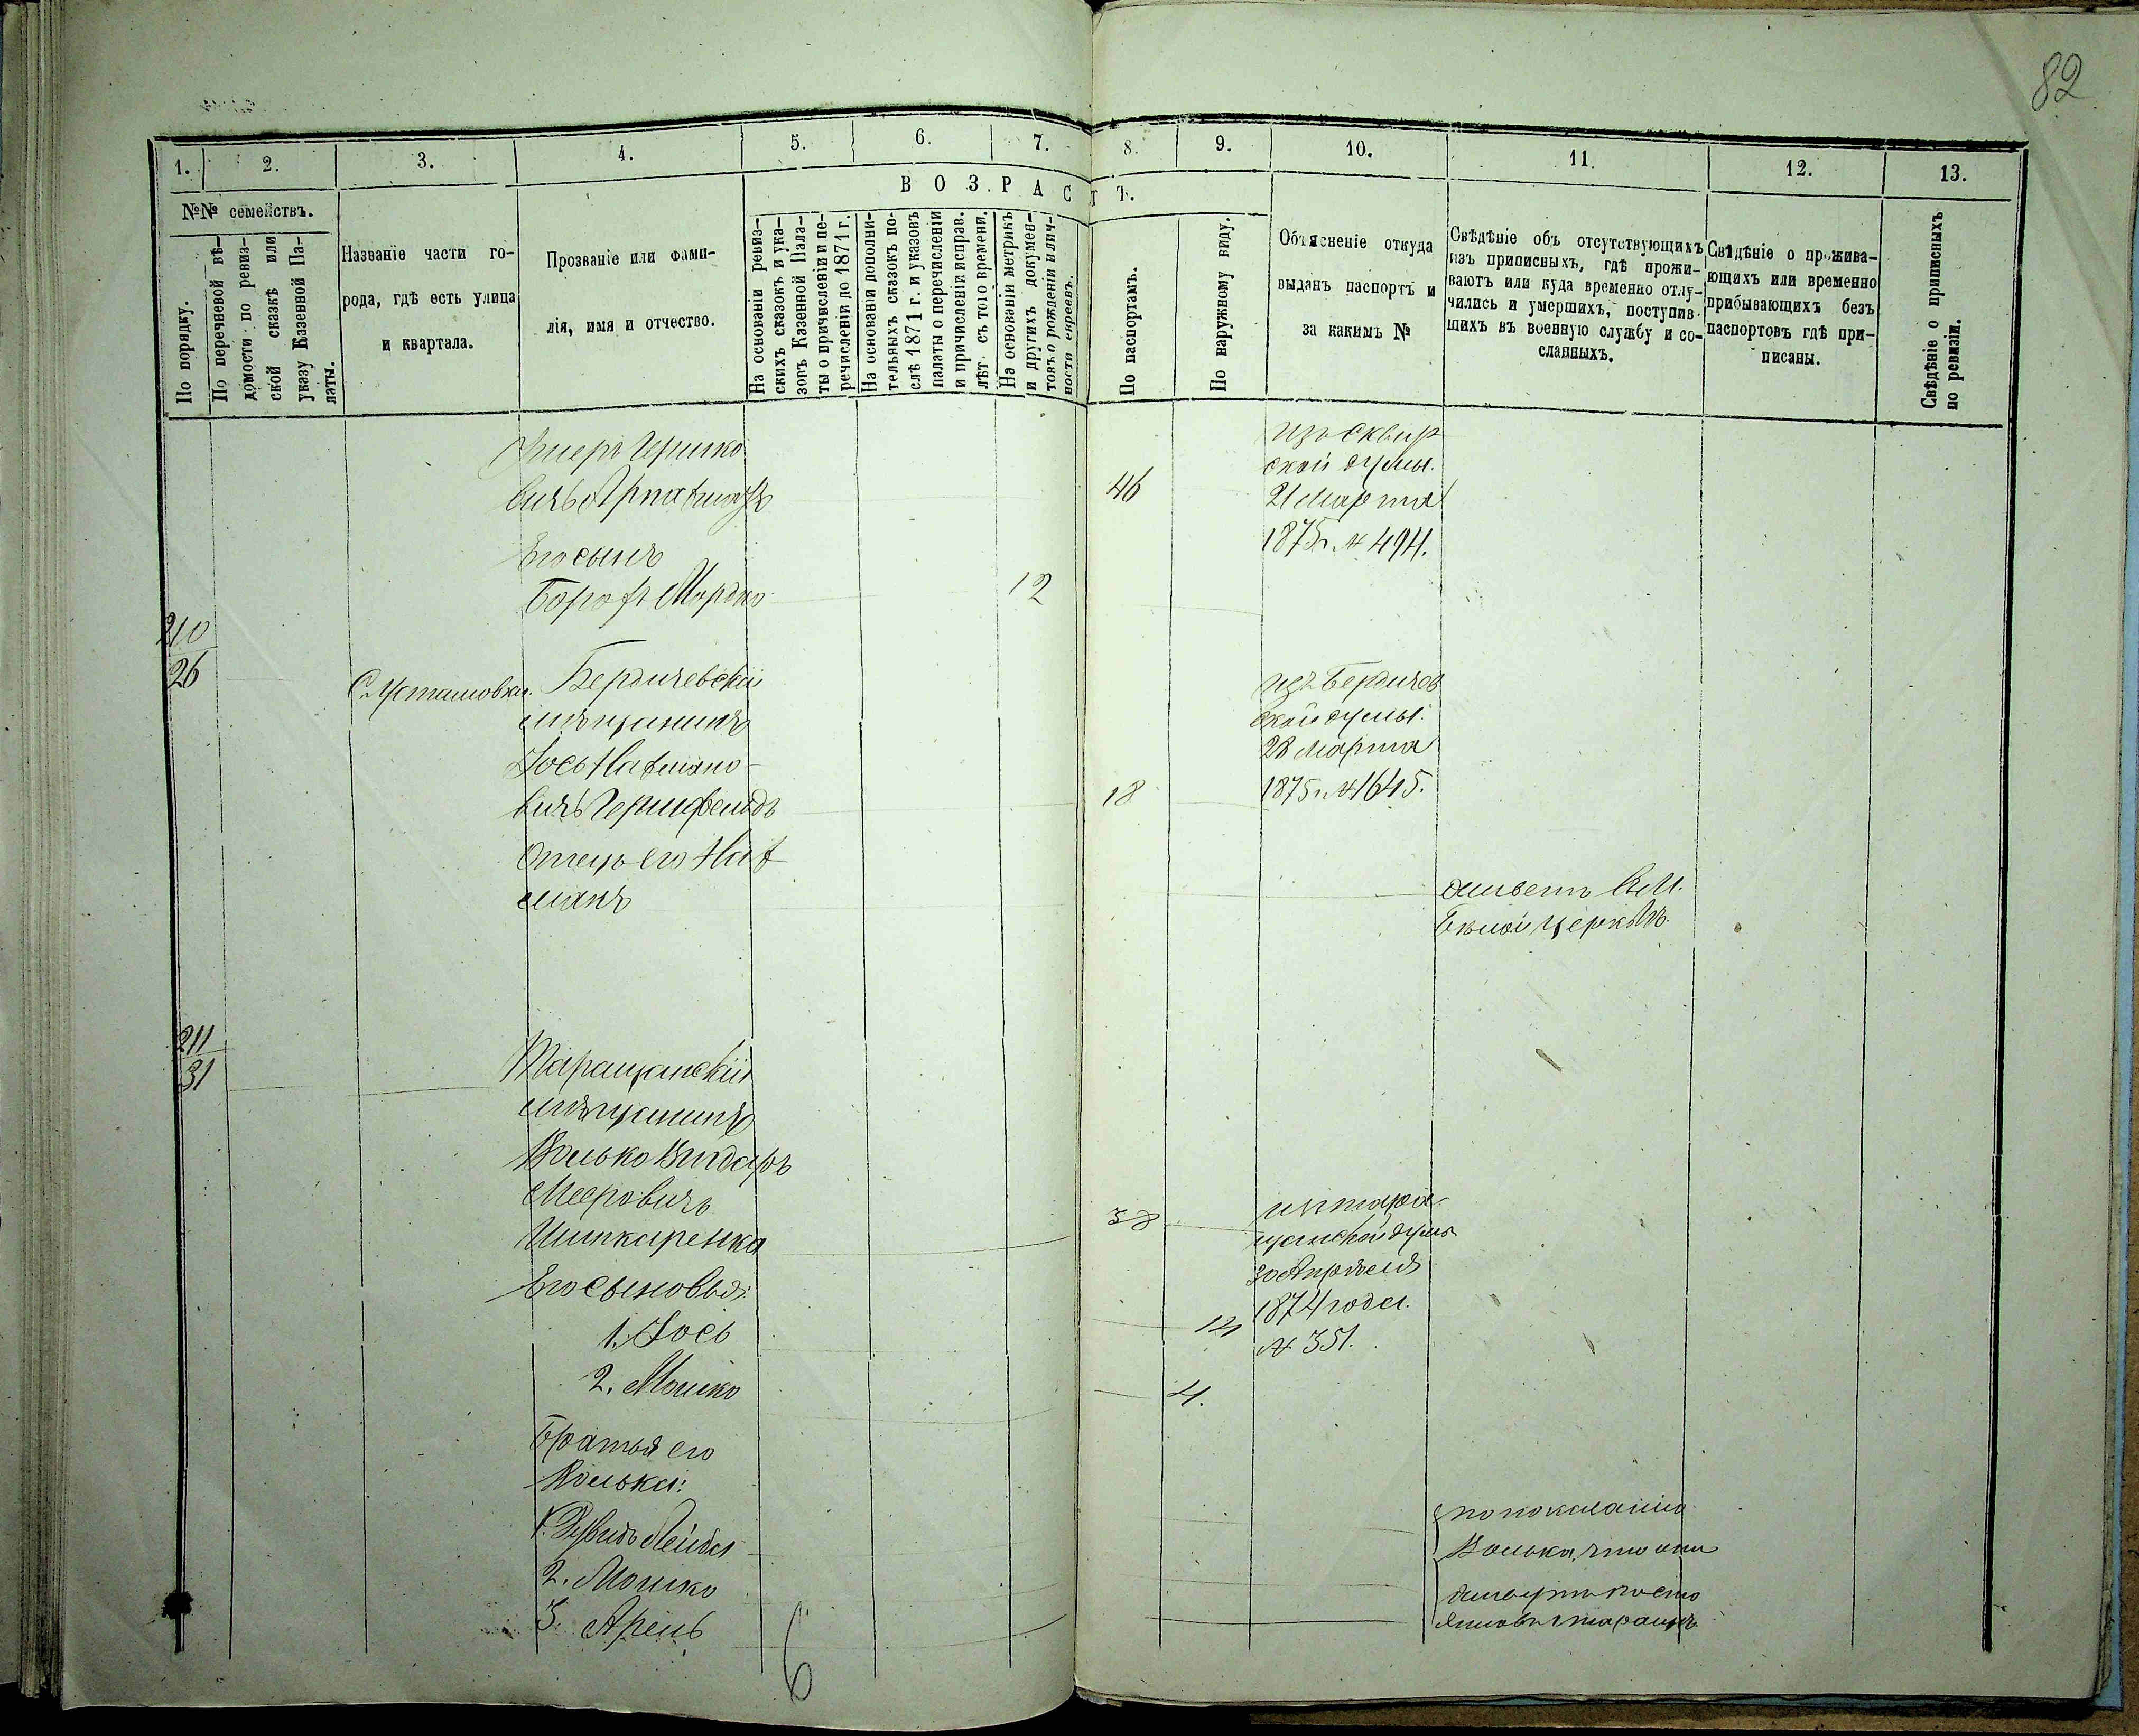 82
1. 2. 3. 4. 5. 6. 7. 8. 9. 10. 11. 12. 13.
№№ семействъ.
По порядку.
По перечневой вѣ-
домости по ревиз-
ской сказкѣ или
указу Казенной Па-
латы.
Названіе части го-
рода, гдѣ есть улица
и квартала.
Прозваніе или фами-
лія, имя и отчество.
ВОЗРАСТЪ.
На основаніи ревиз-
скихъ сказокъ и ука-
зовъ Казенной Пала-
ты о причисленіи и пе-
речисленіи до 1871 г.
На основаніи дополни-
тельныхъ сказокъ по-
слѣ 1871 г. и указовъ
палаты о перечисленіи
и причисленіи исправ.
лѣт. съ того времени.
На основаніи метрикъ
и другихъ докумен-
товъ о рожденіи и лич-
ности евреевъ.
По паспортамъ.
По наружному виду.
Объясненіе откуда
выданъ паспортъ и
за какимъ №
Свѣдѣніе объ отсутствующихъ
изъ приписныхъ, гдѣ прожи-
ваютъ или куда временно отлу-
чились и умершихъ, поступив-
шихъ въ военную службу и со-
сланныхъ.
Свѣдѣніе о прожива-
ющихъ или временно
прибывающихъ безъ
паспортовъ гдѣ при-
писаны.
Свѣдѣніе о приписныхъ
по ревизіи.
Гершко
вичъ
46
изъ Сквир
ской думы.
21 Марта
1875 г. № 494.
Его сынъ
Борохъ Мордко
12
210
26
Бердичевскій
мѣщанинъ
Іось Нахмано-
вичъ Герцфельдъ
18
изъ Бердичев
ской думы.
28 Марта
1875 г. № 1645.
Отецъ его Нах
манъ
живетъ в м.
Бѣлой Церкви.
211
31
Таращанскій
мѣщанинъ
Волько
Мееровичъ
Шинкаренко
38
изъ Тара
щанской думы
30 Апрѣля
1874 года.
№ 351.
Его сыновья:
1. Іось
14
2. Мошко
4.
Братья его
Волька:
1. Дувидъ Лейба
2. Мошко
3. Арень
по показанію
Волька, что они
живутъ посто
янно въ г. Таращѣ
6